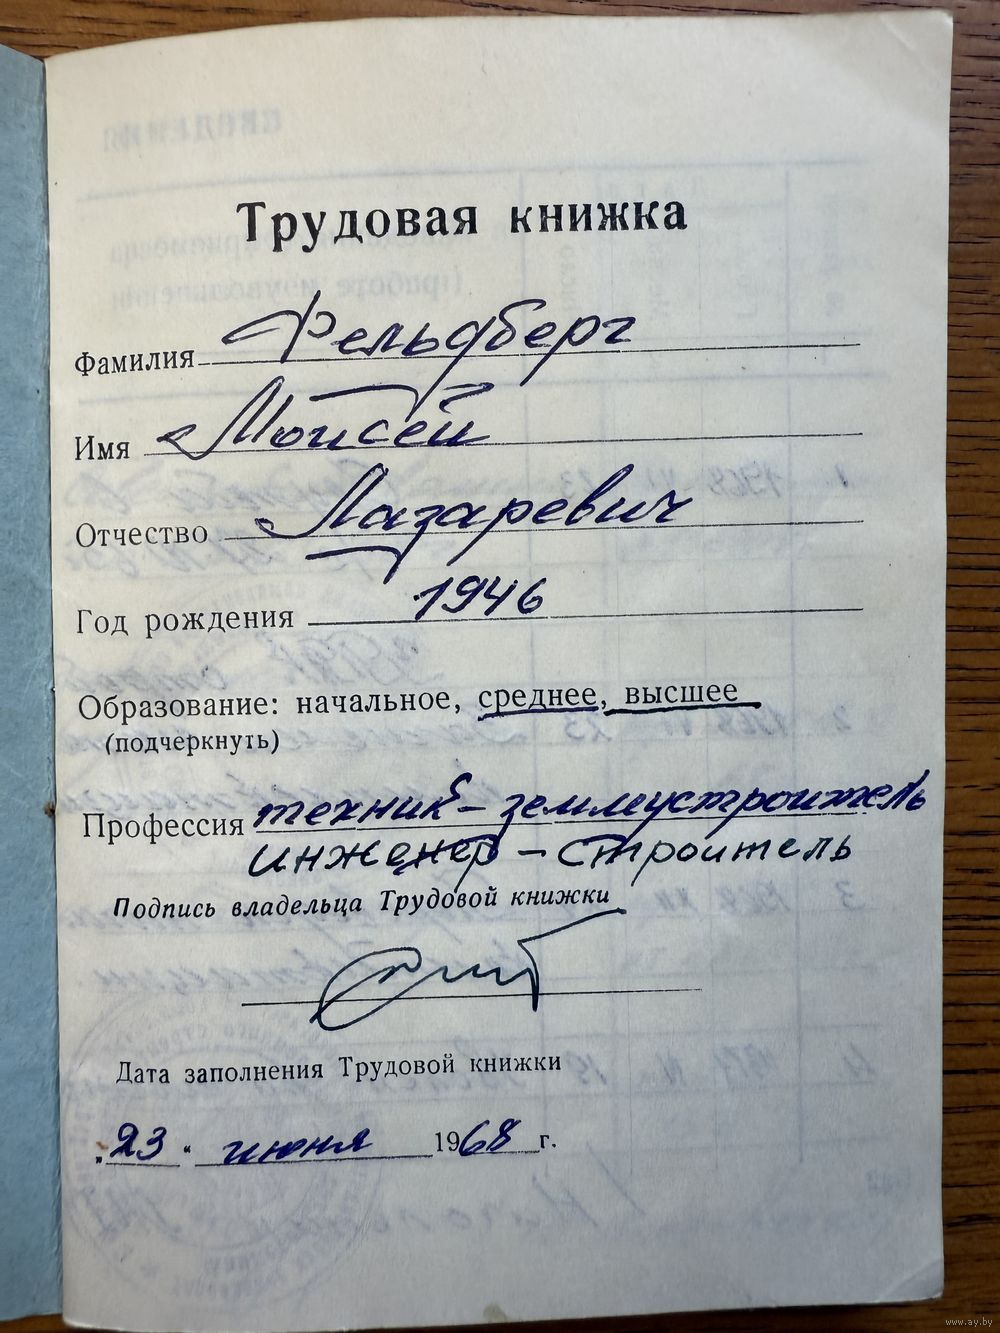 Трудовая книжка
Фамилия Фельдберг
Имя Моисей
Отчество Лазаревич
Год рождения 1946
Образование: начальное, среднее, высшее
(подчеркнуть)
Профессия техник-землеустроитель
инженер-строитель
Подпись владельца Трудовой книжки
Дата заполнения Трудовой книжки
„23“ июня 1968 г.
www.ay.by